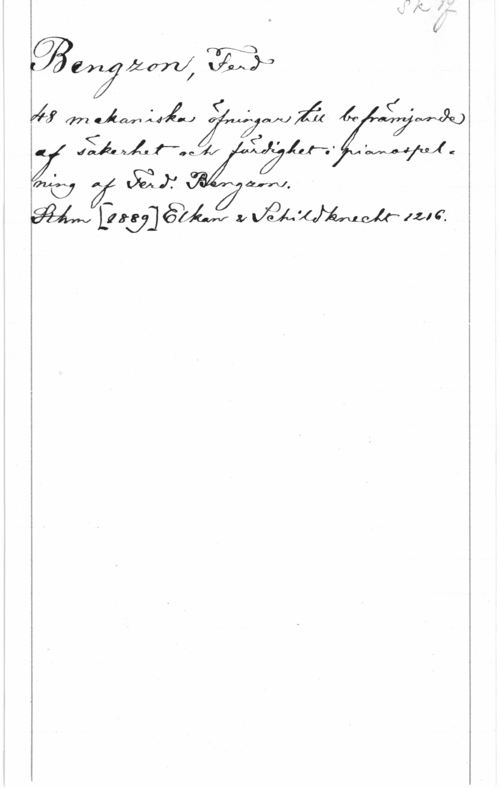 Sk 17
Bengzon, Ferd
48 mekaniska öfningar till befrämjande
af säkerhet och färdighet i pianospel-
ning af Ferd. Bengzon.
Sthm [1889] Elkan & Schildknecht 1216.